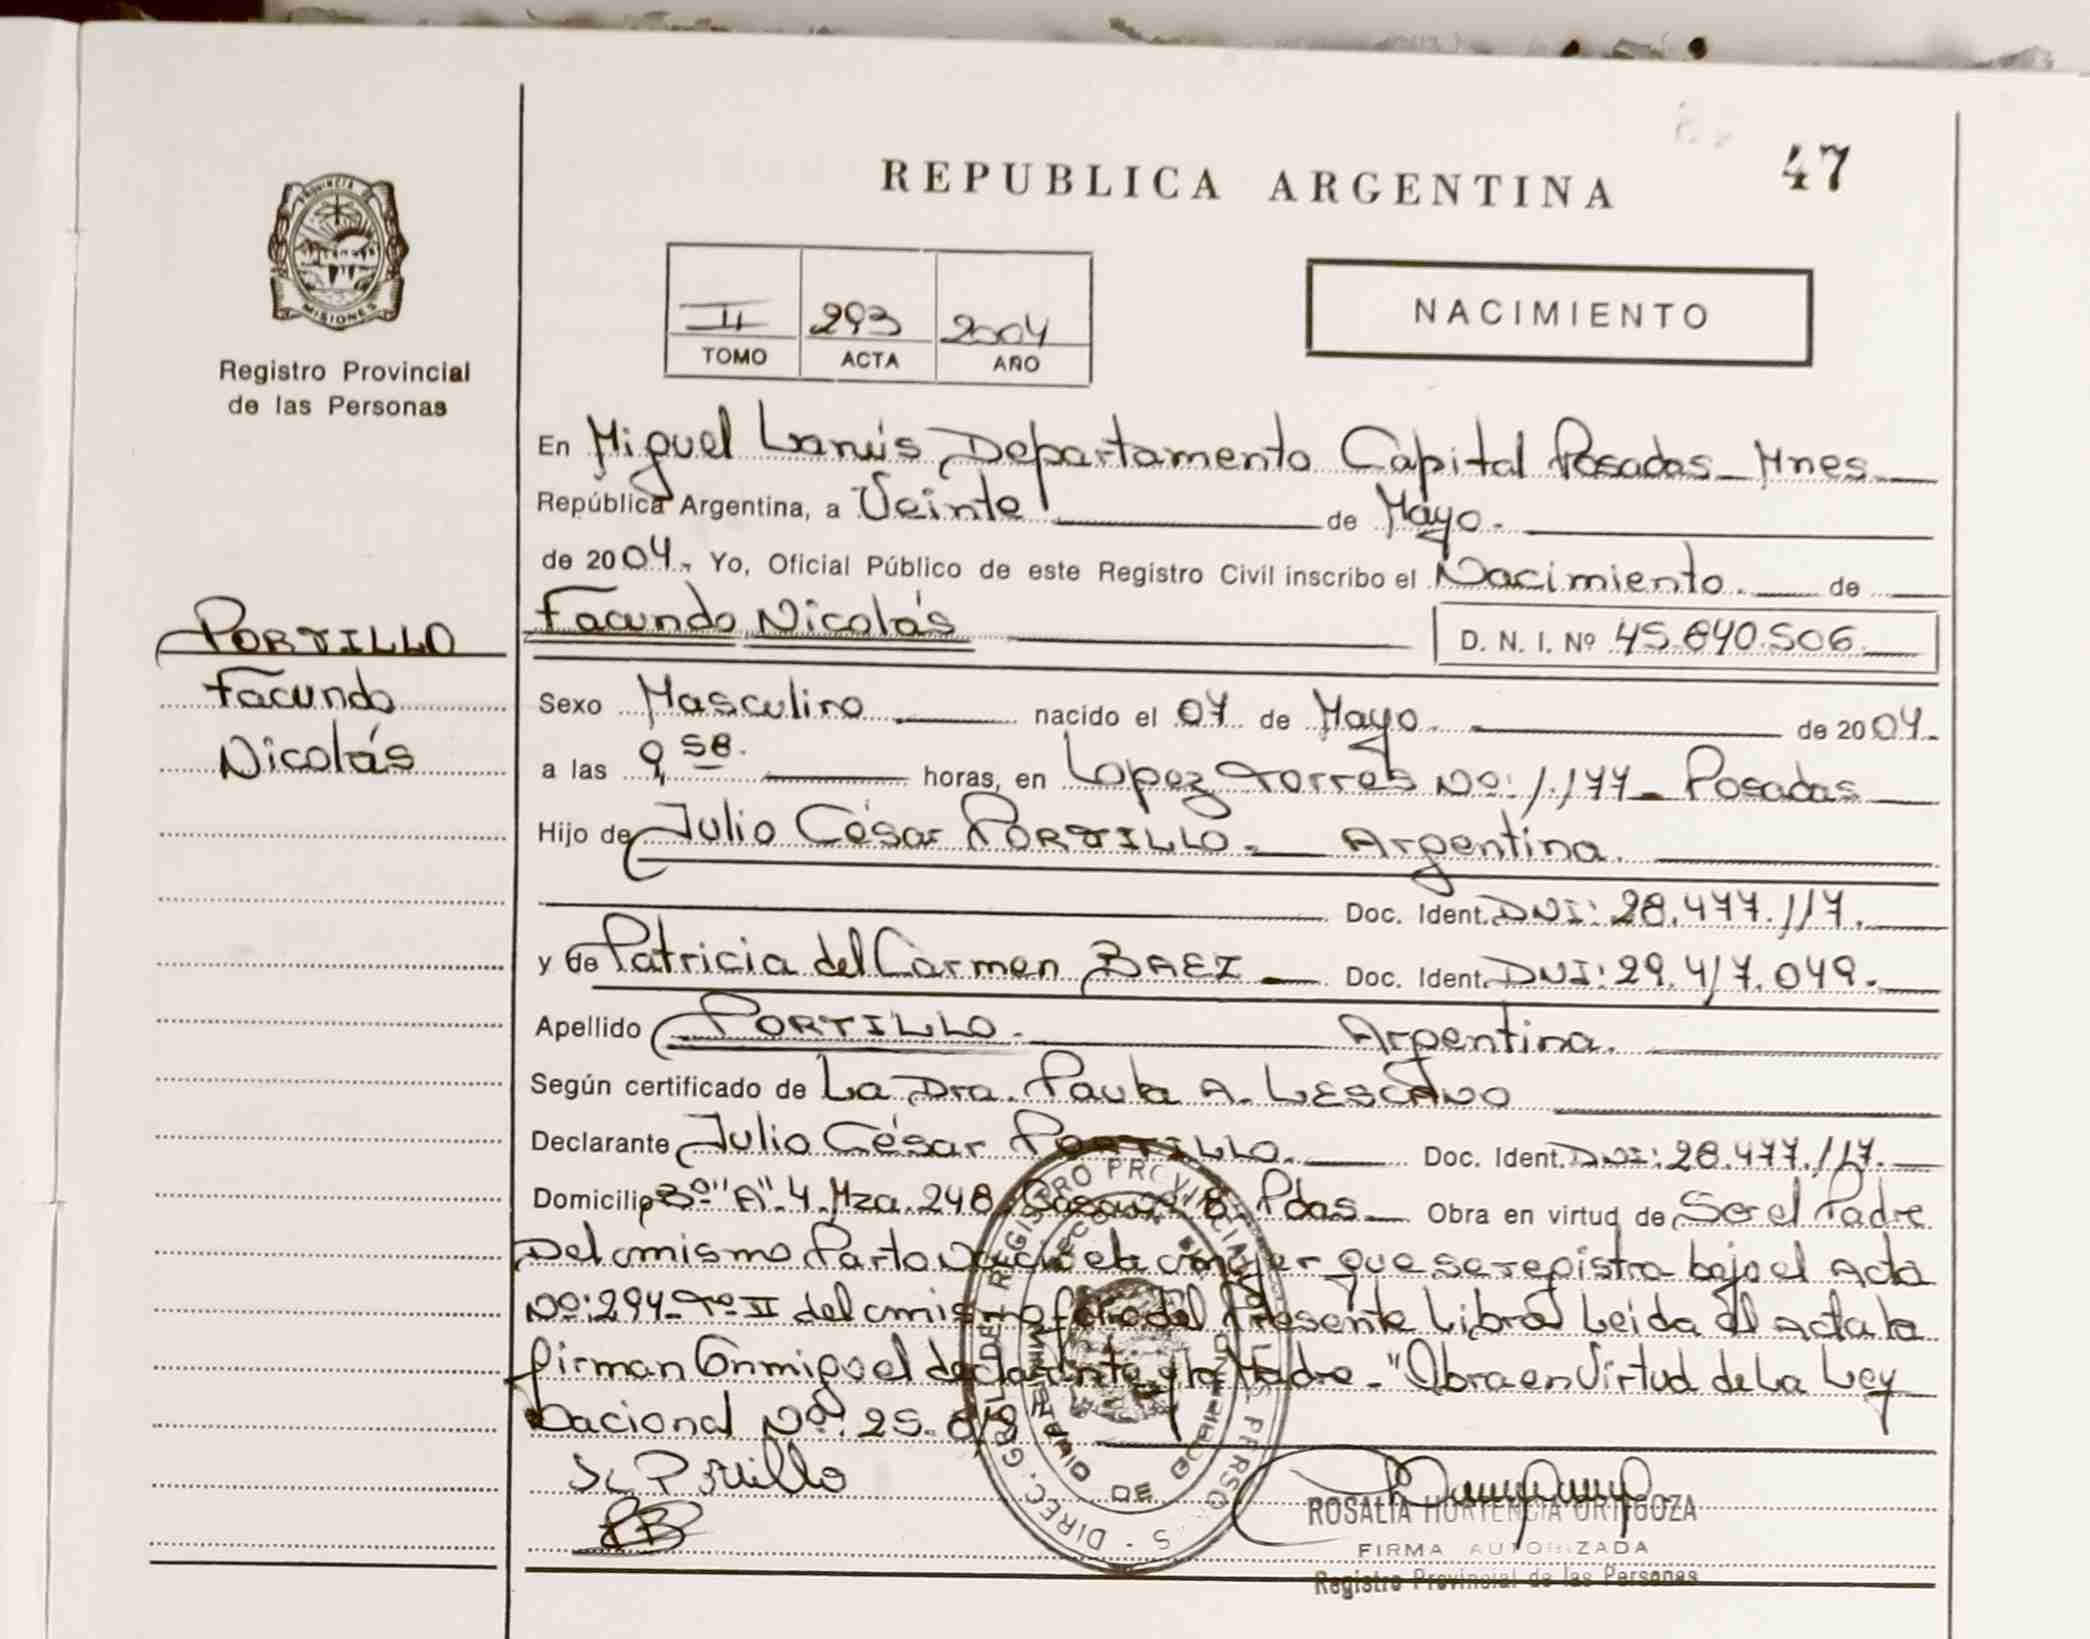 47
REPUBLICA ARGENTINA
PROVINCIA DE
MISIONES
Registro Provincial
de las Personas
II 293 2004
TOMO ACTA AÑO
NACIMIENTO
En Miguel Lanús Departamento Capital Posadas - Mnes
República Argentina, a Veinte de Mayo.
de 2004. Yo, Oficial Público de este Registro Civil inscribo el Nacimiento. de
PORTILLO
Facundo
Nicolás
Facundo Nicolás
D. N. I. Nº 45.840.506.
Sexo Masculino nacido el 07 de Mayo. de 2004.
a las 9,58. horas, en Lopez Torres Nº: 1.177 - Posadas
Hijo de Julio César PORTILLO. Argentina.
Doc. Ident. DNI: 28.477.117.
y de Patricia del Carmen BAEZ Doc. Ident. DNI: 29.417.049.
Apellido PORTILLO. Argentina.
Según certificado de La Dra. Paula A. LESCANO
Declarante Julio César PORTILLO. Doc. Ident. DNI: 28.477.117.
Domicilio Bº "A" 4. Mza. 248 Casa 8. Pdas Obra en virtud de Ser el Padre
Del mismo Parto mujer que se registra bajo el Acta
Nº: 294 - Tº II del mismo folio del Presente Libro Leida el Acta la
firman Conmigo el declarante y la Madre - "Obra en Virtud de La Ley
Nacional Nº: 25.819
J C Portillo
PB
ROSALIA HORTENCIA ORTIGOZA
FIRMA AUTORIZADA
Registro Provincial de las Personas
DIREC. GRAL. DEL REGISTRO PROVINCIAL DE LAS PERSONAS